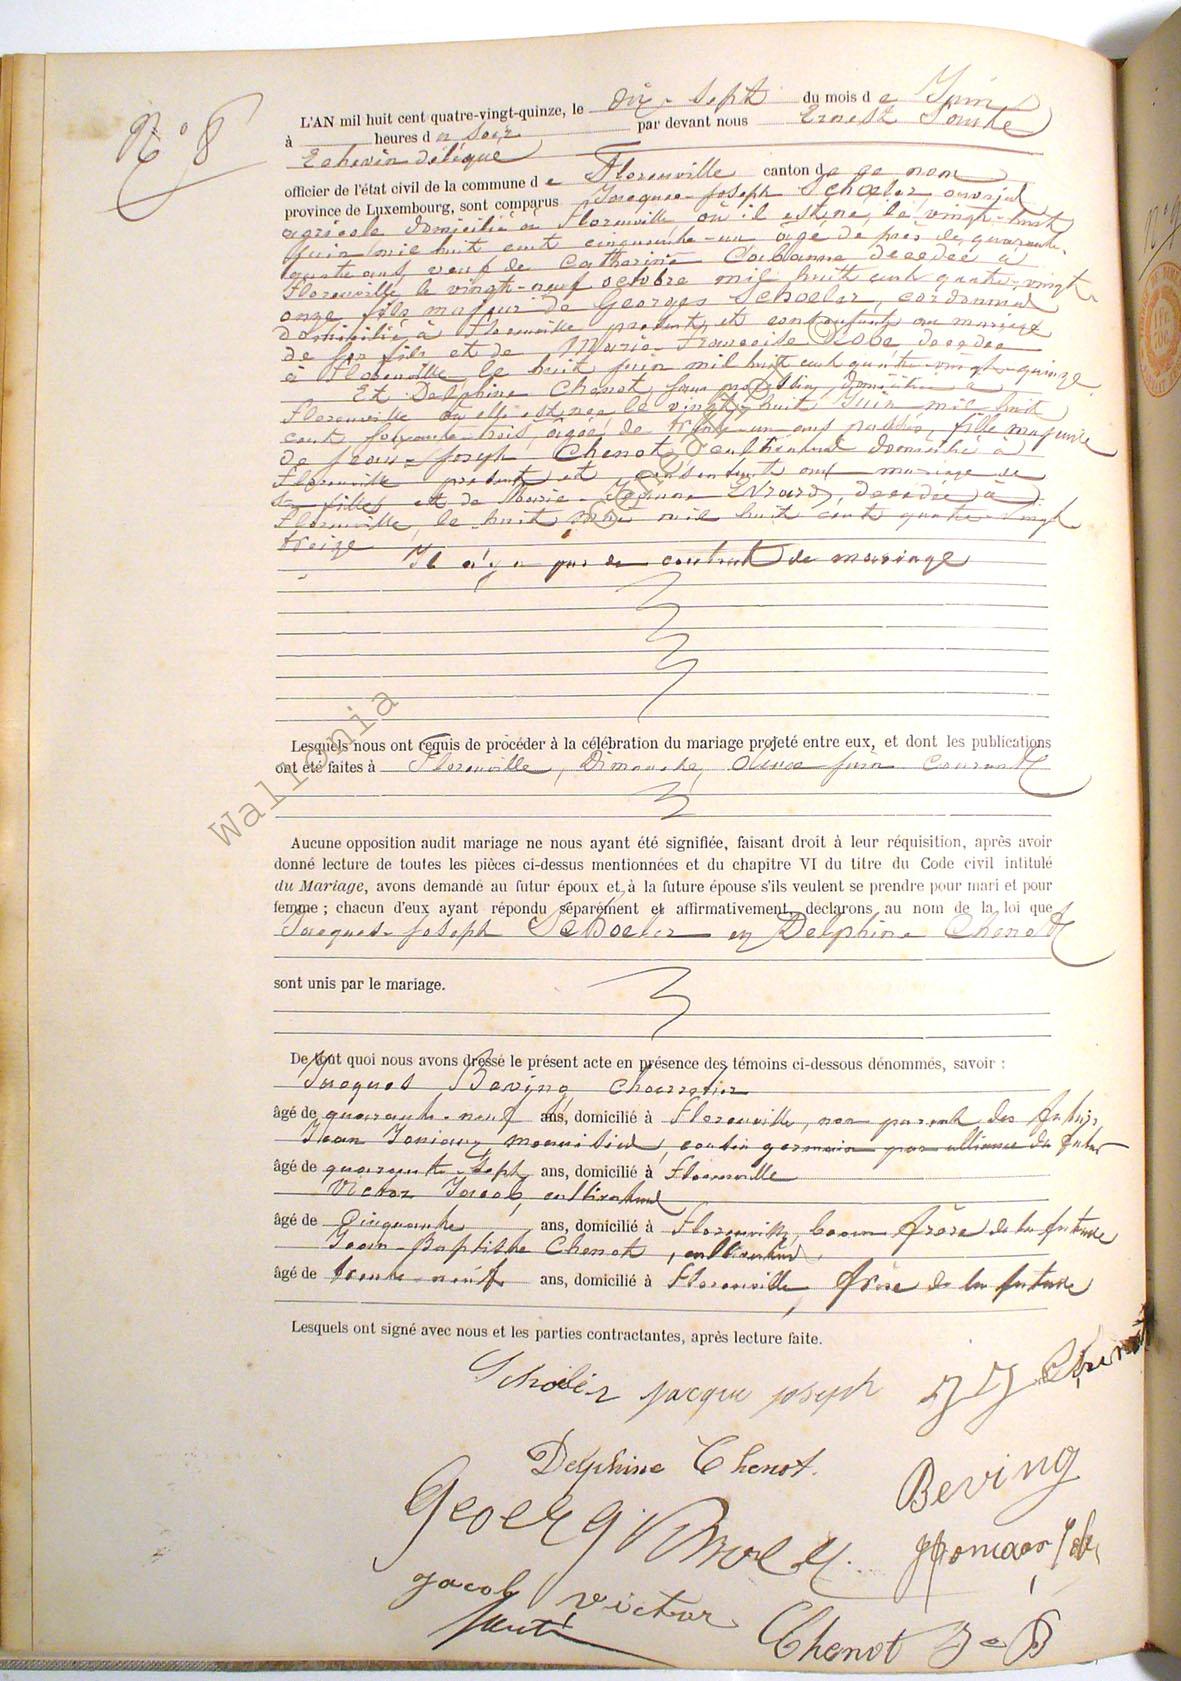 N° 8
L'AN mil huit cent quatre-vingt-quinze, le dix-sept du mois de Juin
à heures du soir par devant nous Ernest
Echevin délégué
officier de l'état civil de la commune de Florenville canton de ce nom
province de Luxembourg, sont comparus Jacques-Joseph Schoeler, ouvrier
agricole domicilié à Florenville où il est né le vingt-huit
Juin mil huit cent cinquante-un âgé de près de quarante
quatre ans, veuf de Catherine Cabanne décédée à
Florenville le vingt-neuf octobre mil huit cent quatre-vingt
onze fils majeur de Georges Schoeler, cordonnier
domicilié à Florenville présent et consentant au mariage
de son fils et de Marie-Françoise décédée
à Florenville le huit juin mil huit cent quatre-vingt-quinze
Et Delphine Chenot, domiciliée à
Florenville où elle est née le vingt-huit Juin mil huit
cent soixante-trois, âgée de trente-un ans passés, fille majeure
de Jean-Joseph Chenot, cultivateur domicilié à
Florenville présent et consentant au mariage de
sa fille, et de Marie-Jeanne Evrard, décédée à
Florenville, le huit mil huit cent quatre-vingt
treize
Il n'y a pas de contrat de mariage
Lesquels nous ont requis de procéder à la célébration du mariage projeté entre eux, et dont les publications
ont été faites à Florenville, Dimanche, juin courant
Aucune opposition audit mariage ne nous ayant été signifiée, faisant droit à leur réquisition, après avoir
donné lecture de toutes les pièces ci-dessus mentionnées et du chapitre VI du titre du Code civil intitulé
du Mariage, avons demandé au futur époux et à la future épouse s'ils veulent se prendre pour mari et pour
femme ; chacun d'eux ayant répondu séparément et affirmativement, déclarons au nom de la loi que
Jacques-Joseph Schoeler et Delphine Chenot
sont unis par le mariage.
De tout quoi nous avons dressé le présent acte en présence des témoins ci-dessous dénommés, savoir :
Jacques Beving, charretier
âgé de quarante-neuf ans, domicilié à Florenville, non parent des futurs,
Jean menuisier, cousin germain par alliance du futur
âgé de quarante-sept ans, domicilié à Florenville
Victor Jacob, cultivateur
âgé de Cinquante ans, domicilié à Florenville, beau frère de la future
Jean-Baptiste Chenot, cultivateur
âgé de trente-neuf ans, domicilié à Florenville, frère de la future
Lesquels ont signé avec nous et les parties contractantes, après lecture faite.
Schoeler jacque joseph J J Chenot
Delphine Chenot.
Beving
Jacob Victor
Chenot J-B
Wallonia